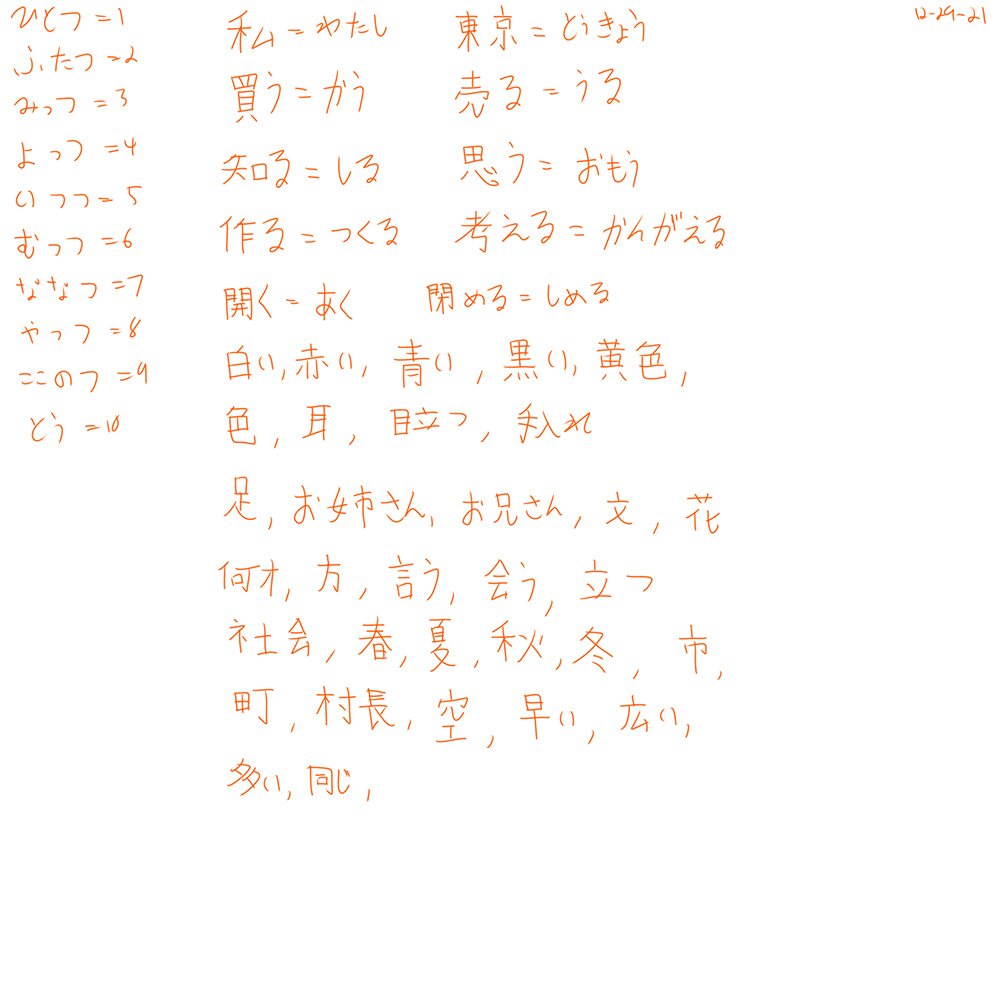 12-29-21
ひとつ=1
ふたつ=2
みっつ=3
よっつ=4
いつつ=5
むっつ=6
ななつ=7
やっつ=8
ここのつ=9
とう=10
私=わたし 東京=とうきょう
買う=かう 売る=うる
知る=しる 思う=おもう
作る=つくる 考える=かんがえる
開く=あく 閉める=しめる
白い, 赤い, 青い, 黒い, 黄色,
色, 耳, 目立つ, 手入れ
足, お姉さん, お兄さん, 文, 花
何才, 方, 言う, 会う, 立つ
社会, 春, 夏, 秋, 冬, 市,
町, 村長, 空, 早い, 広い,
多い, 同じ,